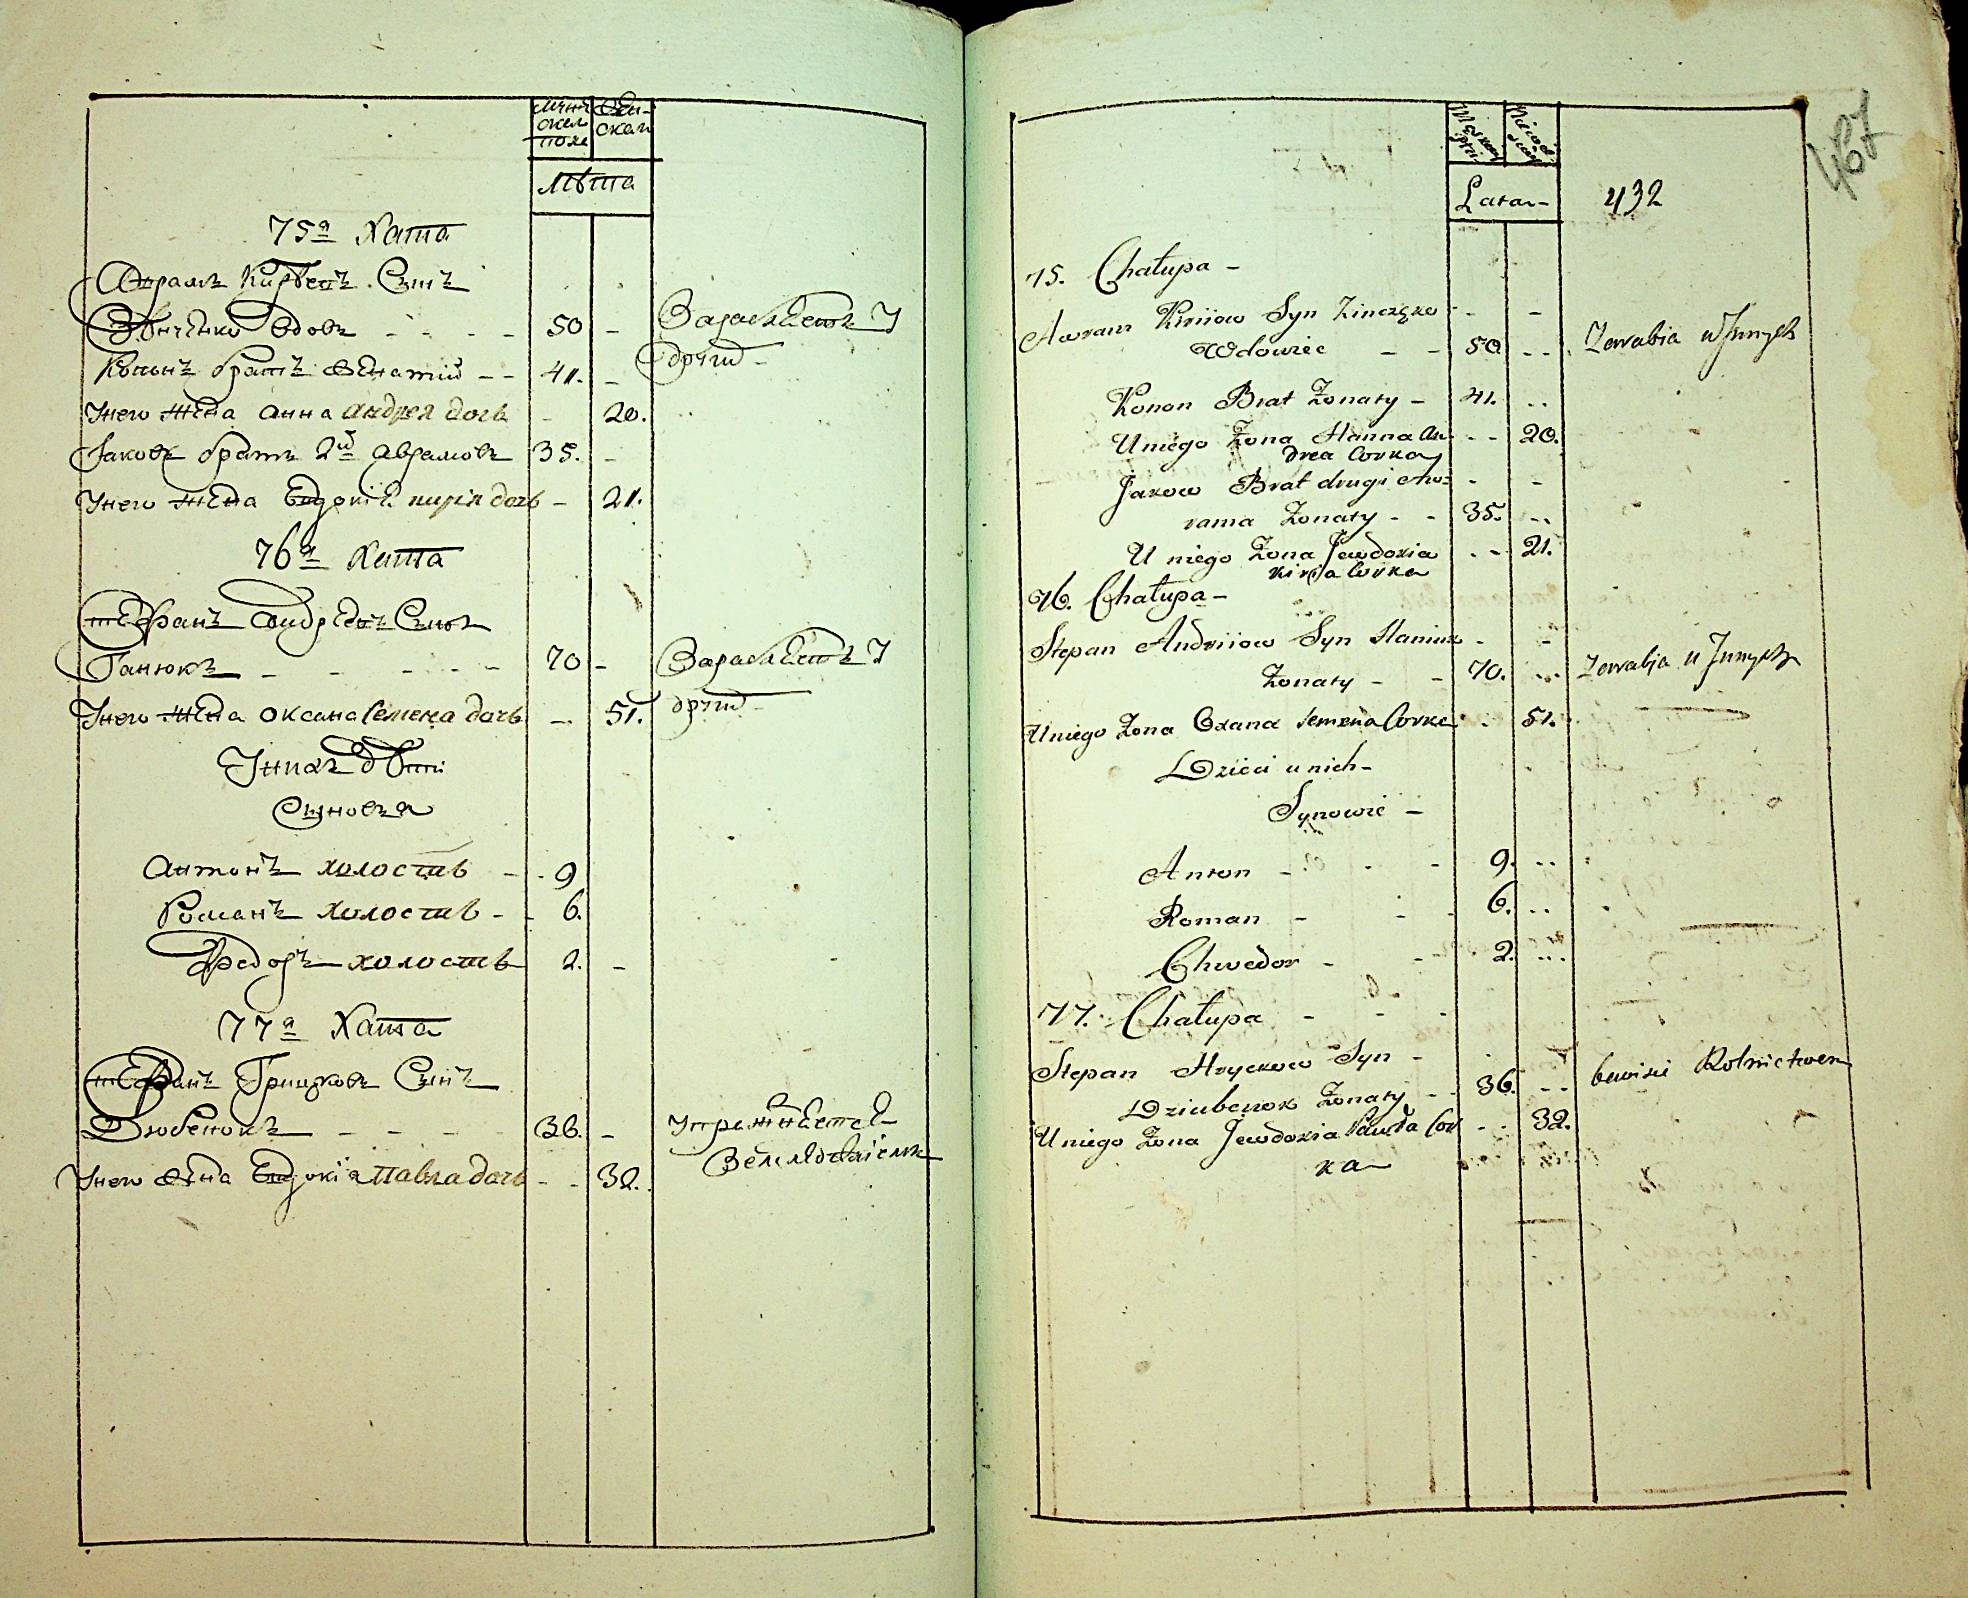 Мужеска полу
Женска
Лѣта
75я Хата
Аврамъ Кирѣевъ Сынъ
Зѣнченко вдовъ - - - - 50 -
Зарабляетъ У
другихъ -
Кононъ братъ женатий - - 41. -
Унего Жена Анна андрея дочь - 20.
Іаковъ братъ 2й аврамовъ 35. -
Унего жена Евдокіѣ кирія дочь - 21.
76я Хата
Стефанъ Андрѣевъ Сынъ
Ганюкъ - - - - 70 -
Зарабляетъ У
другихъ -
Унего Жена оксана Семена дочь - 51.
Унихъ дѣти
Сыновья
Антонъ холостъ - - 9
Романъ холостъ - - 6.
Федоръ холостъ 2. -
77я Хата
Стефанъ Грицковъ Сынъ
Дзюбенокъ - - - - 36. -
упражняется
Земледѣліемъ
Унего жена Евдокія Павла дочь - - 32.
467
Męskiey płci
Lata -
432
75. Chałupa -
Awram Kiriiow Syn Zinczęko - -
Wdowiec - - 50 - -
Zarrabia u Innych
Konon Brat Zonaty - 41. - -
Uniego Zona Hanna An- - - 20.
drea Corka
Jakow Brat drugi Aw= - -
rama Zonaty - - 35. - -
U niego Zona Jewdokia - - 21.
Kirja Corka
76. Chałupa -
Stepan Andriiow Syn Haniuk - -
Zonaty - - 70. - -
Zarrabja u Innych
Uniego Zona Oxana Semena Corka - 51.
Dzieci u nich -
Synowie -
Anton - - - 9. - -
Roman - - - 6. - -
Chwedor - - - 2. - -
77. Chałupa - - -
Stepan Hryckow Syn -
Dziubenok Zonaty - - 36. - -
bawi się Rolnictwem
Uniego Zona Jewdokia Pawła Cor - - 32.
ka -